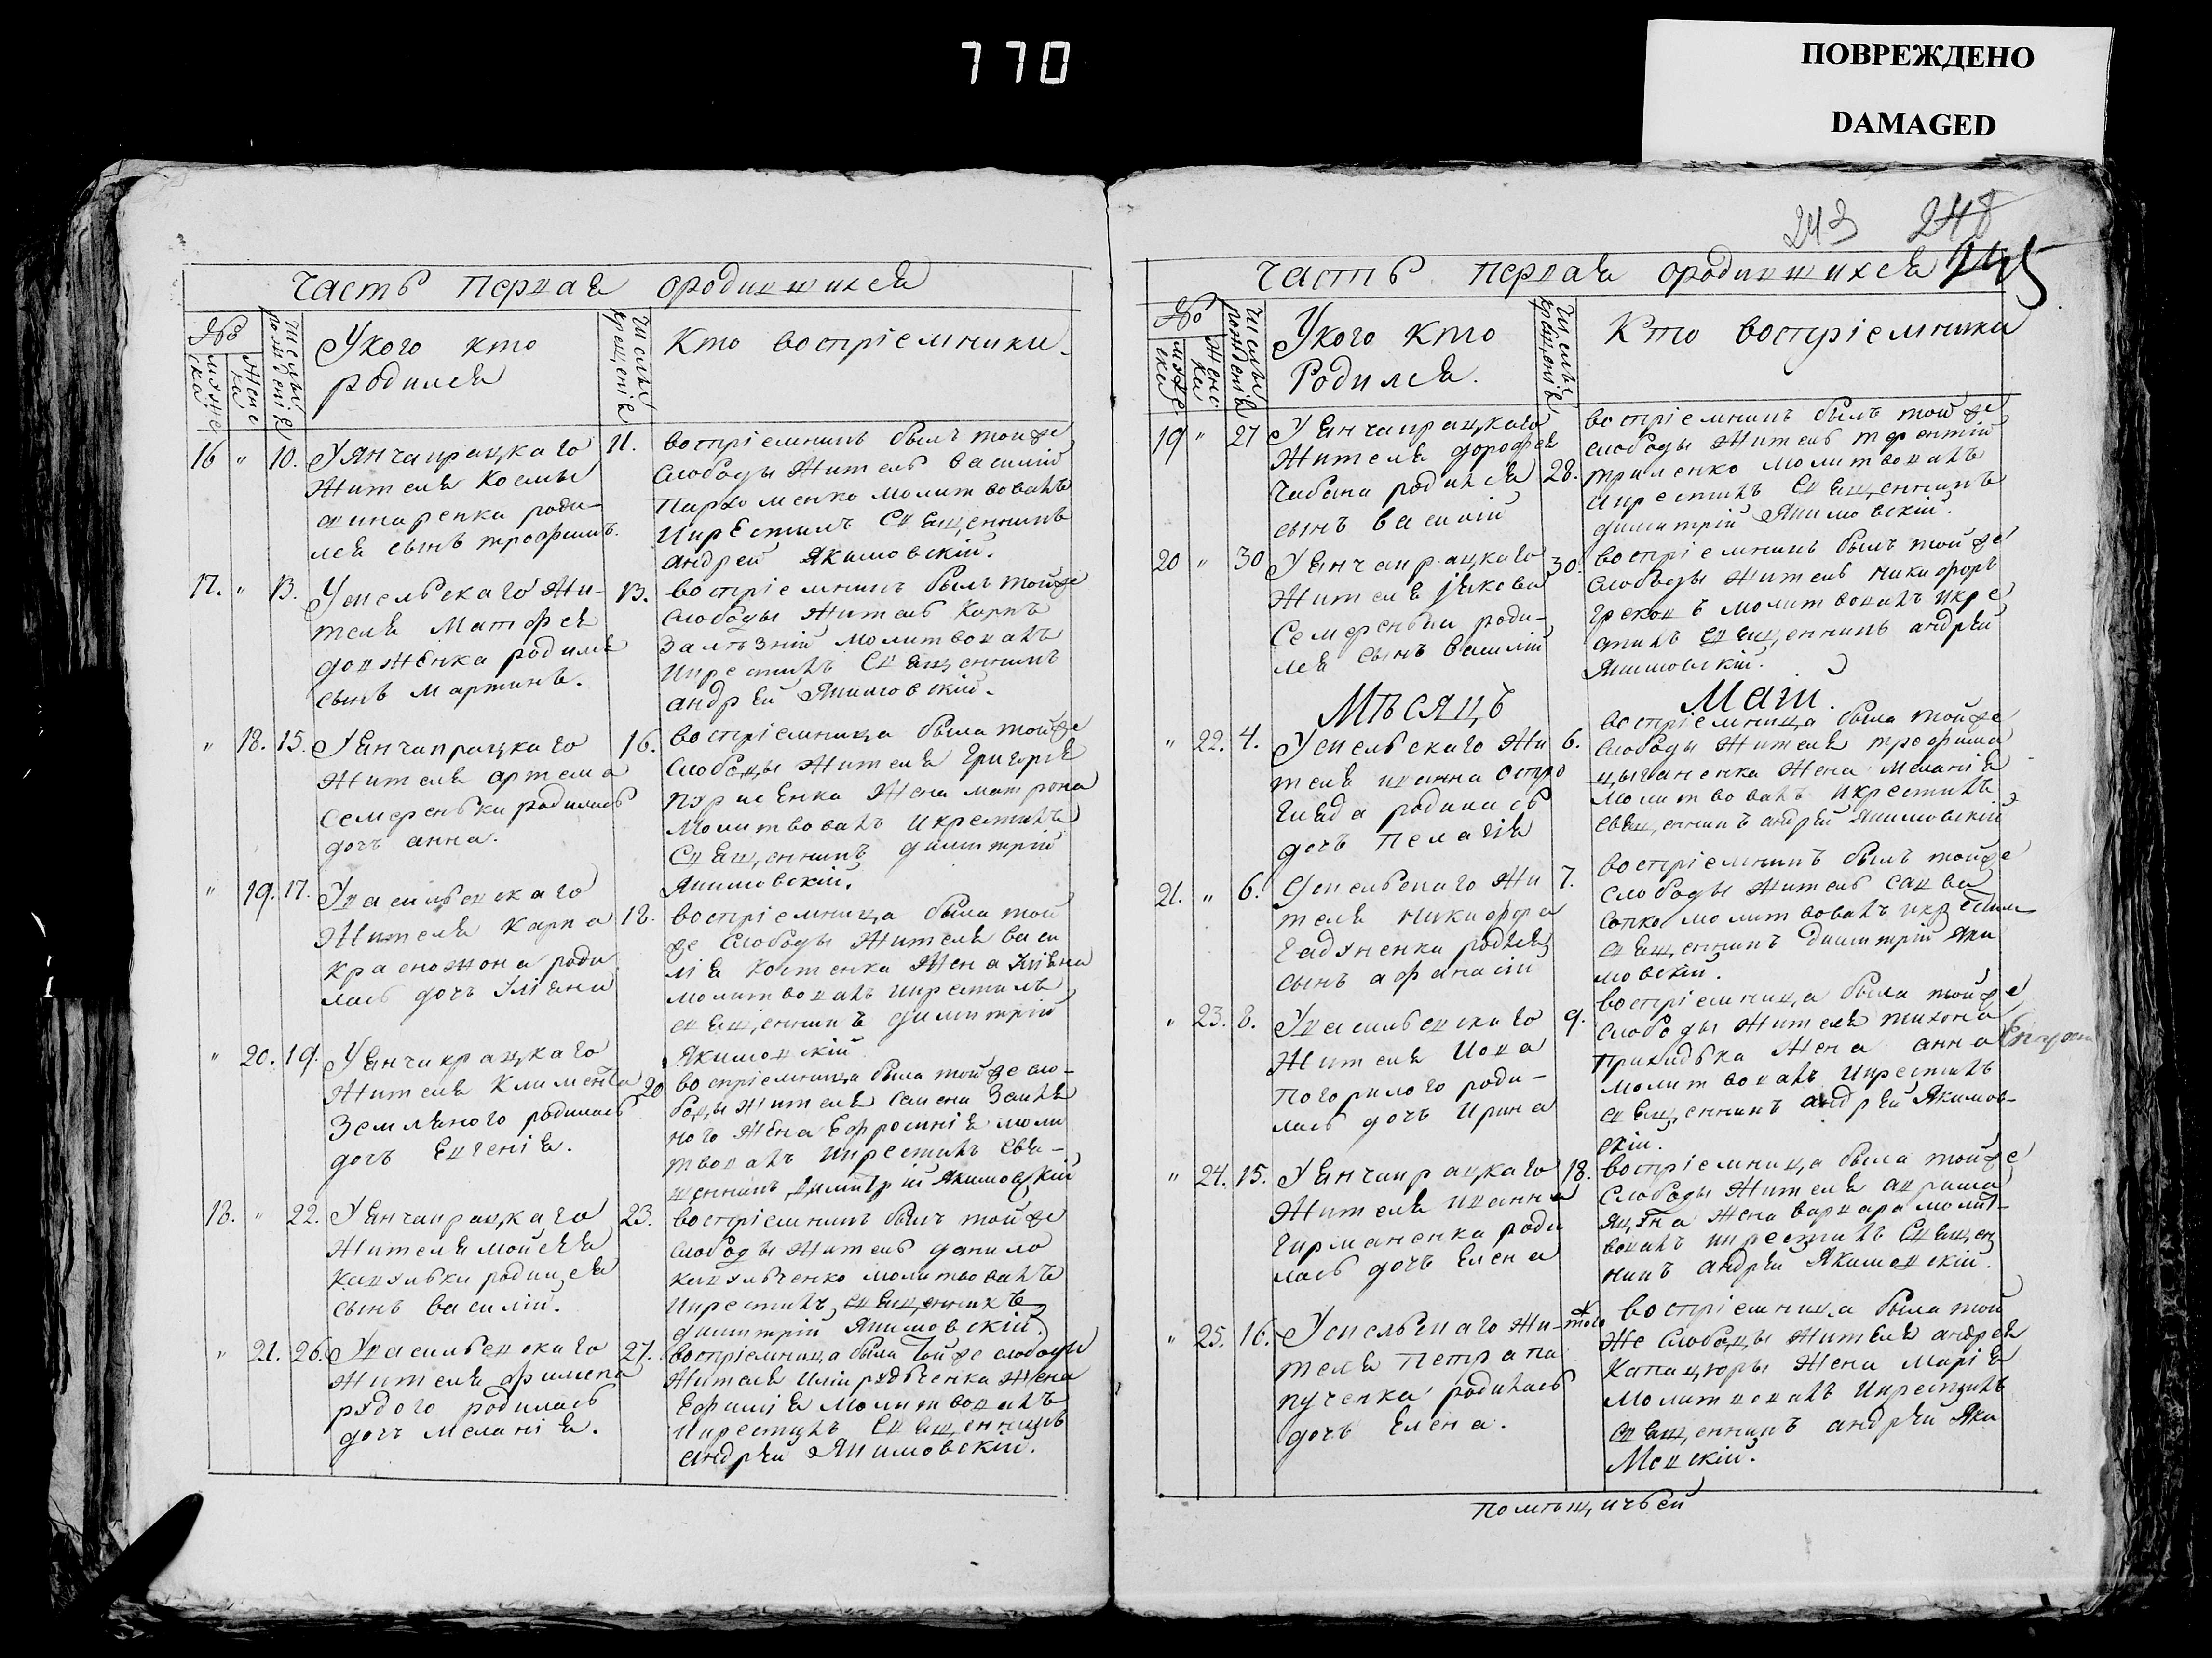 770
ПОВРЕЖДЕНО
DAMAGED
Часть первая ородившихся
№
мужеска
женска
Числы рожденія
Укого кто
родился
Числы крещенія
Кто воспріемники.
16 " 10. Уянчакрацкаго
жителя Космы
роди-
лся сынъ трофимъ.
11. воспріемникъ былъ тойже
слободы житель василій
Пархоменко молитвовалъ
икрестилъ священникъ
андрей Якимовскій.
17. " 13. Усисельскаго жи-
теля Матфея
довженка родился
сынъ мартинъ.
13. воспріемникъ былъ тойже
слободы житель Карпъ
Залѣзній молитвовалъ
икрестилъ священникъ
андрей Якимовскій.
" 18. 15. Уянчакрацкаго
жителя артема
семеренки родилась
дочь анна.
16. воспріемница была тойже
слободы жителя григорія
жена матрона
молитвовалъ икрестилъ
священникъ димитрій
Якимовскій.
" 19. 17. Увасильевскаго
жителя карпа
красножона роди
лась дочь Іуліяна
18. воспріемница была той
же слободы жителя васи
лія костенка жена Уліяна
молитвовалъ икрестилъ
священникъ димитрій
Якимовскій
" 20. 19. Уянчакрацкаго
жителя климента
Земляного родилась
дочь Евгенія.
20 воспріемница была тойже сло-
боды жителя семена
ного жена Ефросинія моли
твовалъ икрестилъ свя-
щенникъ димитрій Якимовскій
18. " 22. Уянчакрацкаго
жителя моисея
кавульки родился
сынъ василій.
23. воспріемникъ былъ тойже
слободы житель данило
кавульченко молитвовалъ
икрестилъ священникъ
димитрій Якимовскій.
" 21. 26. Увасильевскаго
жителя филипа
рудого родилась
дочь меланія.
27. воспріемница была тойже слободы
жителя иліи рудченка жена
Ефимія молитвовалъ
икрестилъ священникъ
андрей Якимовскій.
243 248
245
Часть первая ородившихся
№
мужеска
женска
Числы рожденія
Укого кто
Родился.
Числы крещенія
Кто воспріемники
19 " 27 Уянчакрацкаго
жителя дорофея
чабана родился
сынъ василій
28. воспріемникъ былъ тойже
слободы житель терентій
триленко молитвовалъ
икрестилъ священникъ
димитрій Якимовскій.
20 " 30 Уянчакрацкаго
жителя іякова
Семеренки роди-
лся сынъ василій
30. воспріемникъ былъ тойже
слободы житель никифоръ
грековъ молитвовалъ икре
стилъ священникъ андрей
Якимовскій.
Мѣсяцъ Маій.
" 22. 4. Усисельскаго жи
теля иванна остро
гляда родилась
дочь Пелагія
6. воспріемница была тойже
слободы жителя трофима
цыганенка жена меланія
молитвовалъ икрестилъ
священникъ андрей Якимовскій
21. " 6. Усисельскаго жи
теля никифора
гадуненка родился
сынъ афанасій
7. воспріемникъ былъ тойже
слободы житель савва
сопко молитвовалъ икрестилъ
священникъ димитрій Яки
мовскій.
" 23. 8. Увасильевскаго
жителя Иова
погорилого роди-
лась дочь Ирина
9. воспріемница была тойже
слободы жителя тихона
прихидька жена анна
молитвовалъ икрестилъ
священникъ андрей Якимов-
скій.
" 24. 15. Уянчакрацкаго
жителя иванна
гирманенка роди
лась дочь Елена
18. воспріемница была тойже
слободы жителя аврама
яцуна жена варвара молит-
вовалъ икрестилъ священ
никъ андрей Якимовскій.
" 25. 16. Усисельскаго жи-
теля Петра па
пученка родилась
дочь Елена.
того воспріемница была той
же слободы жителя андрея
капацюры жена марія
молитвовалъ икрестилъ
священникъ андрей Яки
мовскій.
помѣщичьей